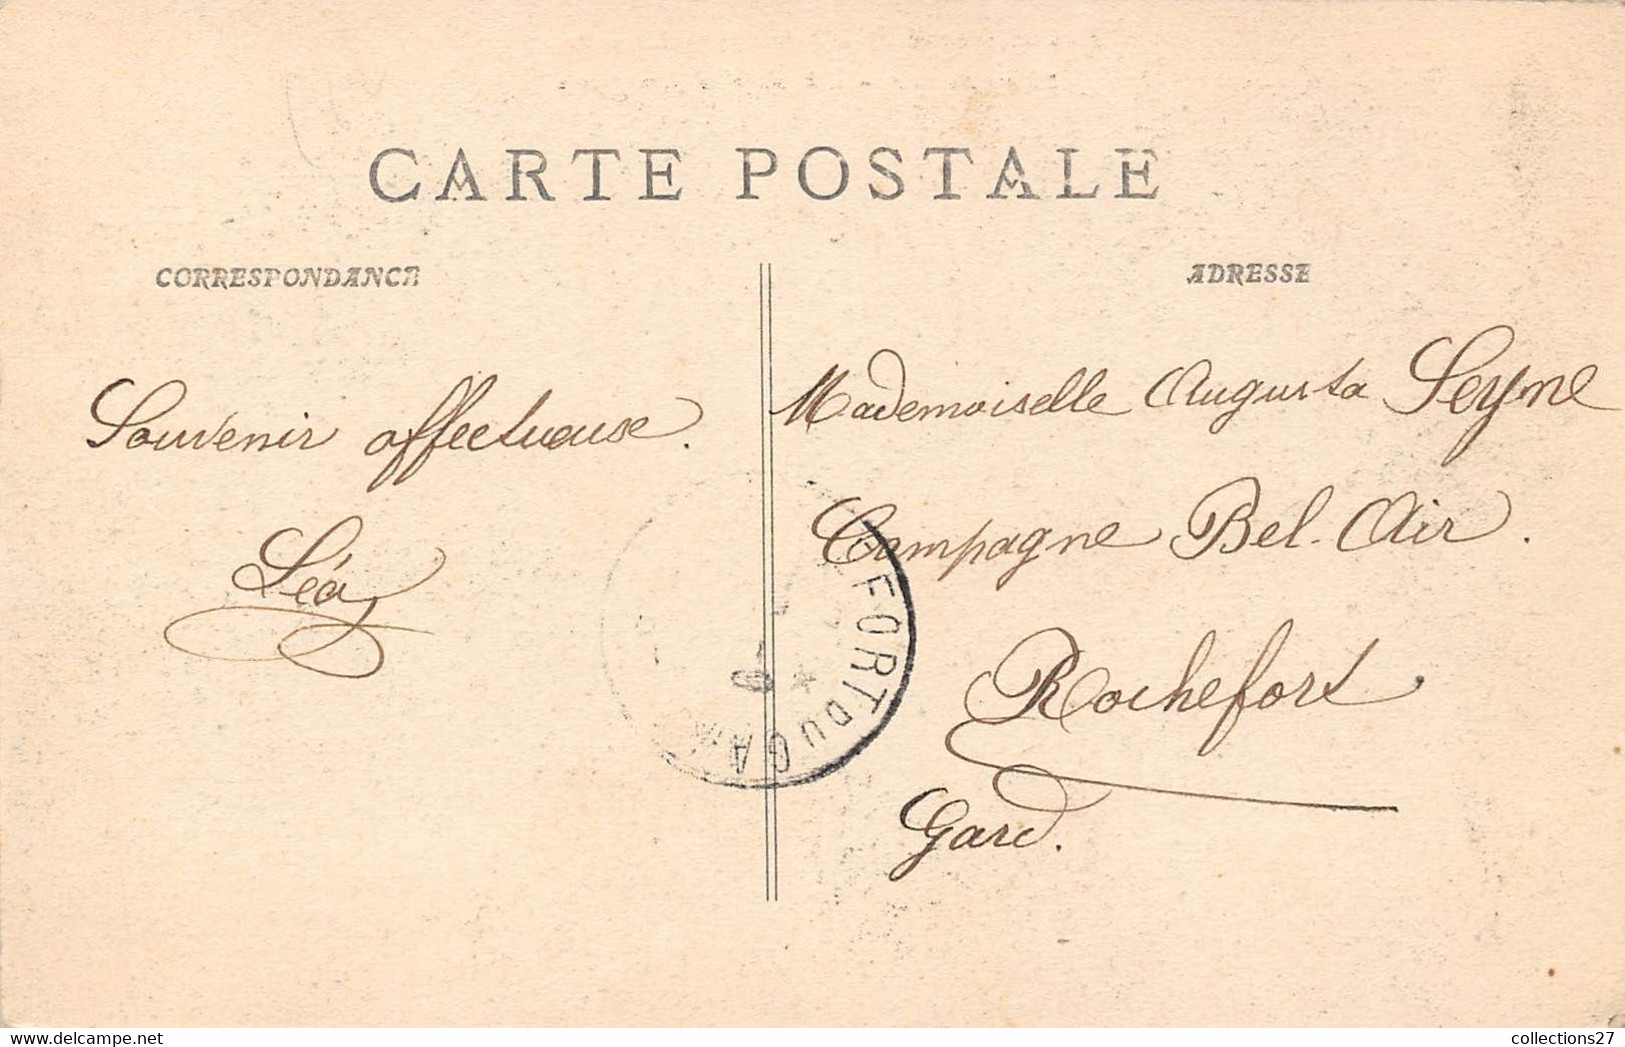 CARTE POSTALE
CORRESPONDANCE
ADRESSE
Souvenir affectueuse.
Léa
Mademoiselle Augusta Seyne
Campagne Bel-Air.
Rochefort
Gard.
FORT DU GA
collections27